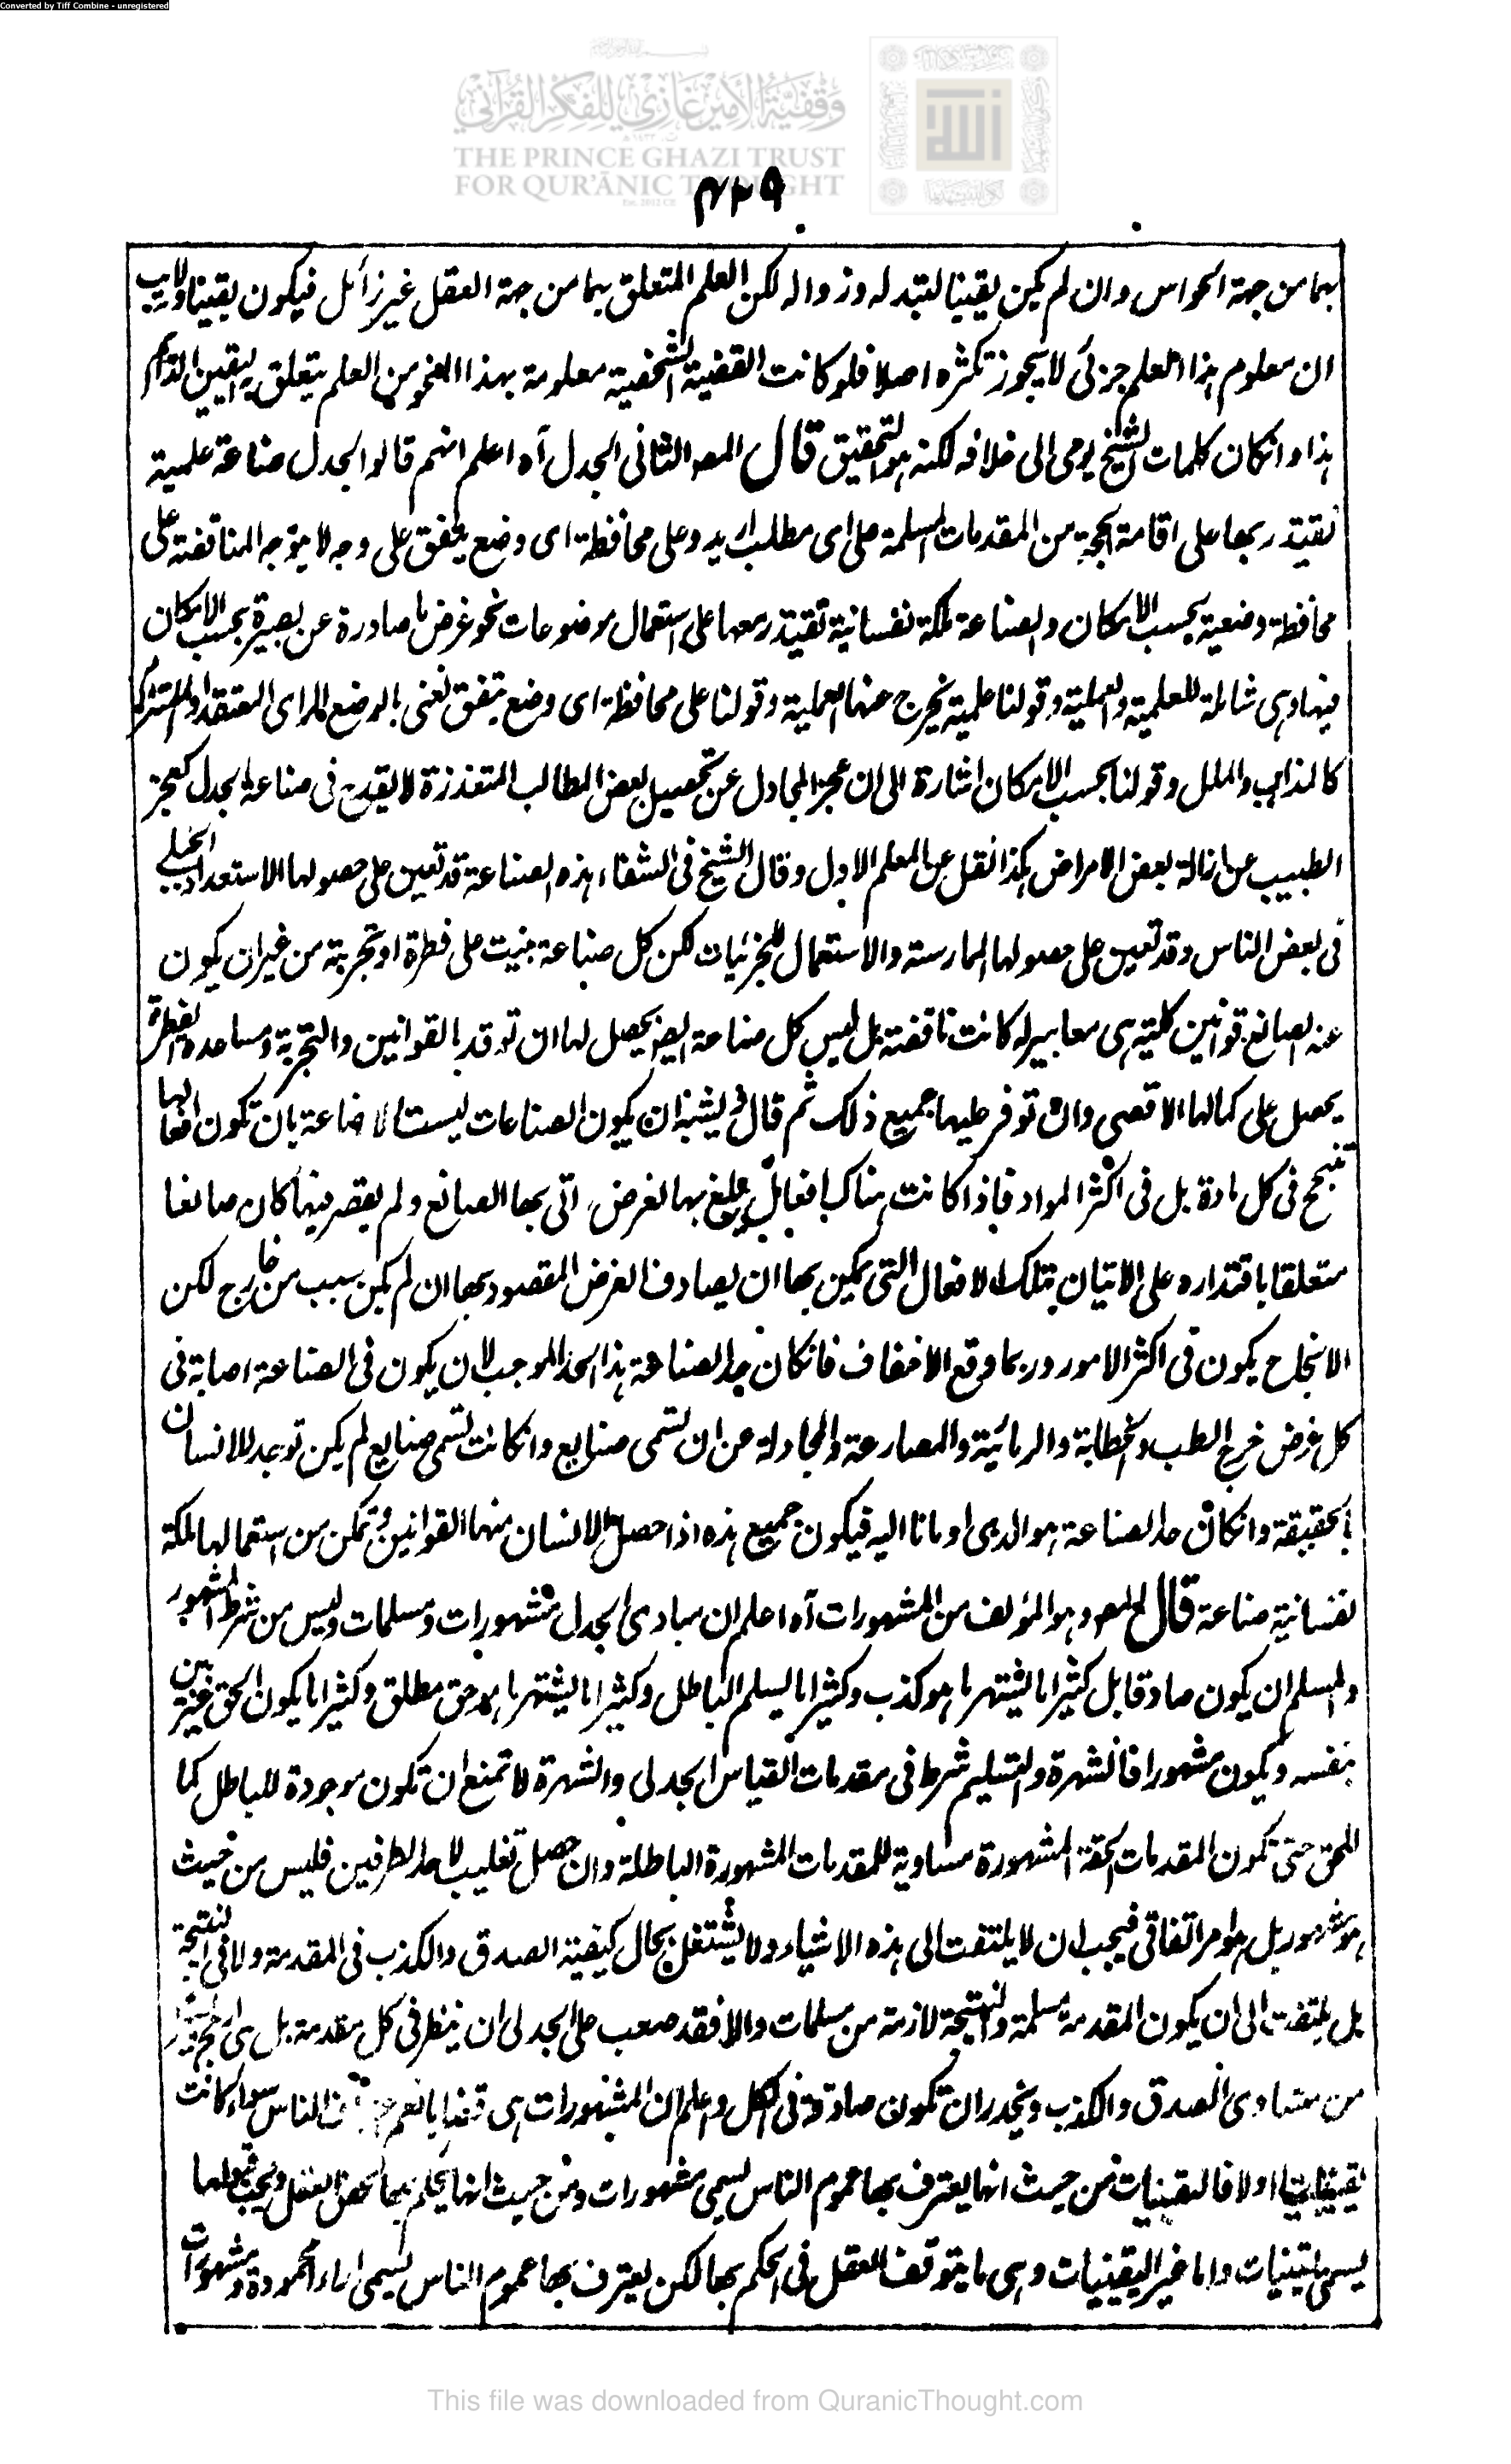 Converted by Tiff Combine - unregistered
وقفية الأمير غازي للفكر القرآني
THE PRINCE GHAZI TRUST
FOR QUR'ĀNIC THOUGHT
Est. 2012 CE
الله
۴۲۹
بهما من جهة الحواس وان لم يكن يقينا لتبدله وزواله لكن العلم المتعلق بهما من جهة العقل غير زائل فيكون يقينا ولا ريب
ان معلوم هذا العلم جزئى لا يجوز تكثره اصلا فلو كانت القضية الشخصية معلومة بهذا النحو من العلم يتعلق به اليقين الدائم
هذا وانكان كلمات الشيخ يومى الى خلافه لكنه هو التحقيق قال المص والثانى الجدل آه اعلم انهم قالوا الجدل صناعة علمية
تقتدر بها على اقامة الحجة من المقدمات المسلمة على اى مطلب اريد وعلى محافظة اى وضع يتفق على وجه لا يتوجه المناقضة على
محافظة وضعية بحسب الامكان والصناعة ملكة نفسانية تقتدر معها على استعمال موضوعات نحو غرض ما صادرة عن بصيرة بحسب الامكان
فيها وهى شاملة للعلمية والعملية وقولنا علمية يخرج عنها العملية وقولنا على محافظة اى وضع يتفق نعنى بالوضع الراى المعتقد او الملتزم
كالمذاهب والملل وقولنا بحسب الامكان اشارة الى ان عجز المجادل عن تحصيل بعض المطالب المتعذرة لا يقدح فى صناعة الجدل كعجز
الطبيب عن ازالة بعض الامراض هكذا نقل عن المعلم الاول وقال الشيخ فى الشفاء هذه الصناعة قد تعين على حصولها الاستعداد الجبلى
فى بعض الناس وقد تعين على حصولها الممارسة والاستعمال للجزئيات لكن كل صناعة بنيت على فطرة او تجربة من غير ان يكون
عند الصانع قوانين كلية هى معاييرله كانت ناقصة بل ليس كل صناعة ايضا يحصل لها ان توقد بالقوانين والتجربة ومساعدة الفطرة
يحصل على كمالها الاقصى وان توفر عليها جميع ذلك ثم قال ويشبه ان يكون الصناعات ليست الاضاعة بان تكون افعالها
تنجح فى كل مادة بل فى اكثر المواد فاذا كانت هناك افعال يبلغ بها الغرض اتى بها الصانع ولم يقصر فيها كان صانعا
متعلقا باقتداره على الاتيان بتلك الافعال التى يمكن بها ان يصادف الغرض المقصود بها ان لم يكن سبب من خارج لكن
الانجاح يكون فى اكثر الامور وربما وقع الاخفاف فانكان حد الصناعة هذا الحد الموجب لان يكون فى الصناعة اصابة فى
كل غرض خرج الطب والخطابة والرمائية والمصارعة والمجادلة عن ان تسمى صنايع وانكانت تسمى صنايع لم يكن توجد للانسان
بالحقيقة وانكان حد الصناعة هو الذى اومانا اليه فيكون جميع هذه اذا حصل للانسان منها القوانين وتمكن من استعمالها ملكة
نفسانية صناعة قال المص وهو المؤلف من المشهورات آه اعلم ان مبادى الجدل مشهورات ومسلمات وليس من شرط المشهور
والمسلم ان يكون صادقا بل كثيرا ما يشتهر ما هو كذب وكثيرا ما يسلم الباطل وكثيرا ما يشتهر ما هو حق مطلق وكثيرا ما يكون الحق غير بين
بنفسه ويكون مشهورا فالشهرة والتسليم شرط فى مقدمات القياس الجدلى والشهرة لا تمنع ان تكون موجودة للباطل كما
للحق حتى تكون المقدمات الحقة المشهورة مساوية للمقدمات المشهورة الباطلة وان حصل تغليب لاحد الطرفين فليس من حيث
هو مشهور بل هو امر اتفاقى فيجب ان لا يلتفت الى هذه الاشياء ولا يشتغل بحال كيفية الصدق والكذب فى المقدمة ولا فى النتيجة
بل يلتفت الى ان يكون المقدمة مسلمة والنتيجة لازمة من مسلمات والا فقد صعب على الجدلى ان ينظر فى كل مقدمة بل هى
من متساوى الصدق والكذب ويحذر ان تكون صادقة فى الكل واعلم ان المشهورات هى قضايا يعم الناس سواء كانت
يقينيات اولا فاليقينيات من حيث انها يعترف بها عموم الناس يسمى مشهورات ومن حيث انها يحكم بها محض العقل ويجب قبولها
يسمى يقينيات واما غير اليقينيات وهى ما يتوقف العقل فى الحكم بها لكن يعترف بها عموم الناس يسمى اراء محمودة ومشهورات
This file was downloaded from QuranicThought.com